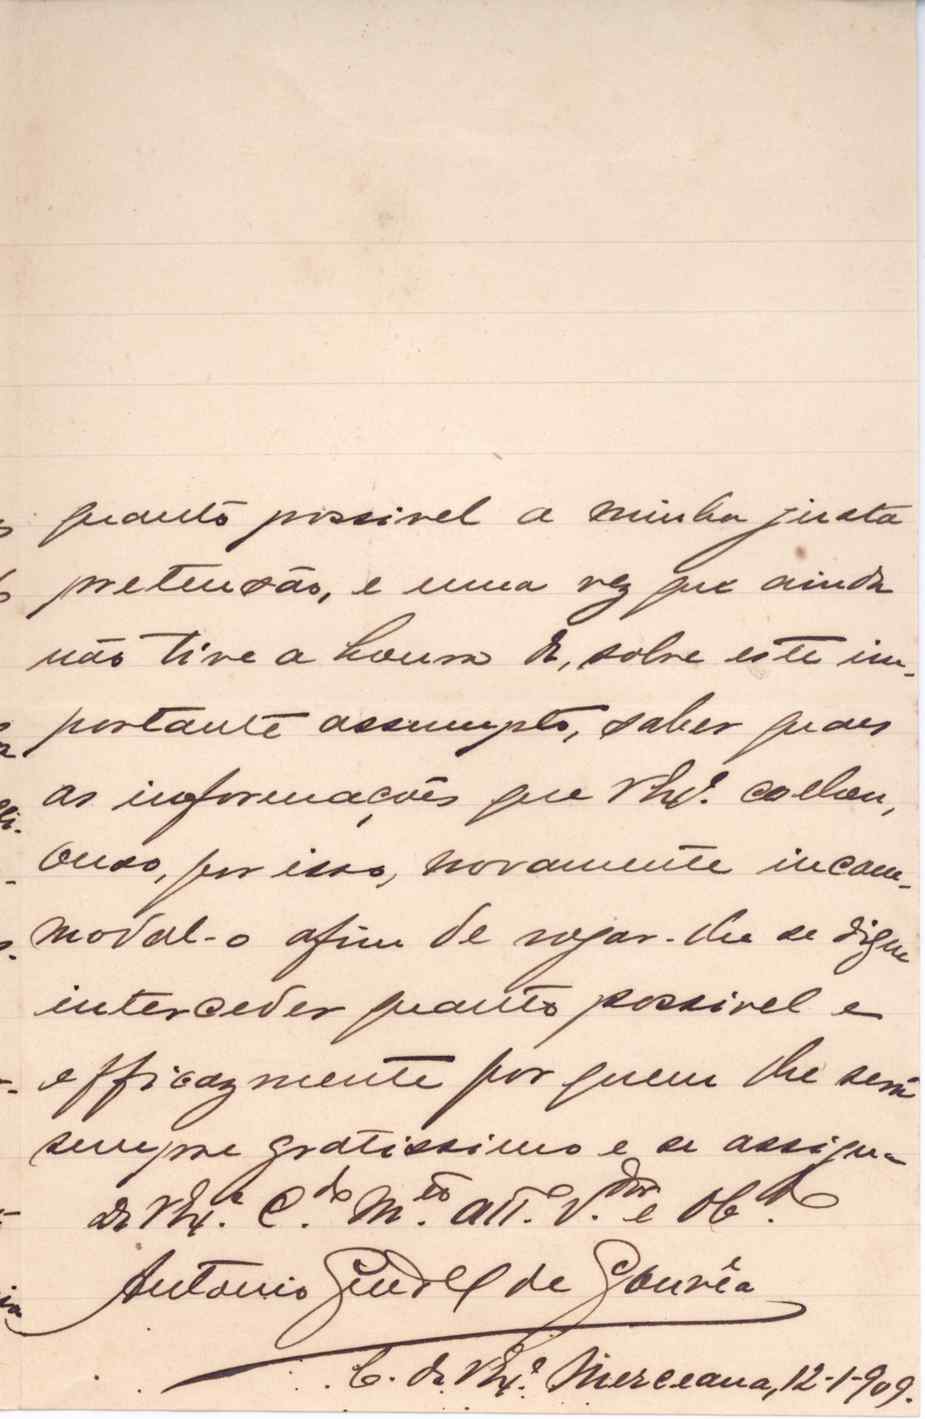 quanto possivel a minha justa
pretensão, e uma vez que ainda
não tive a honra de, sobre este im-
portante assumpto, saber quaes
as informações que V. Ex.ª colheu,
ouso, por isso, novamente incom-
modal-o afim de rogar-lhe se digne
interceder quanto possivel e
efficazmente por quem lhe será
sempre gratissimo e se assigna
de V. Ex.ª C.do M.to att. V.dor e Ob.do
Antonio de Gouvêa
de V. Ex.ª Merceana, 12-1-909.